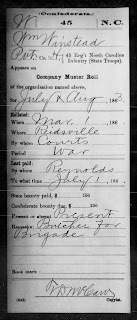 Confederate.
W | 45 | N. C.
Wm Winstead
Pvt, Co. H, 45 Reg't North Carolina
Infantry (State Troops).
Appears on
Company Muster Roll
of the organization named above,
for July & Aug, 186 3
Enlisted:
When Mar. 1, 186
Where Reidsville
By whom Courts
Period War
Last paid:
By whom Reynolds
To what time July 1, 186
State bounty paid, $ 100 186
Confederate bounty due, $ 100 186
Present or absent Present
Remarks: Butcher for
Brigade
Book mark:
Copyist.